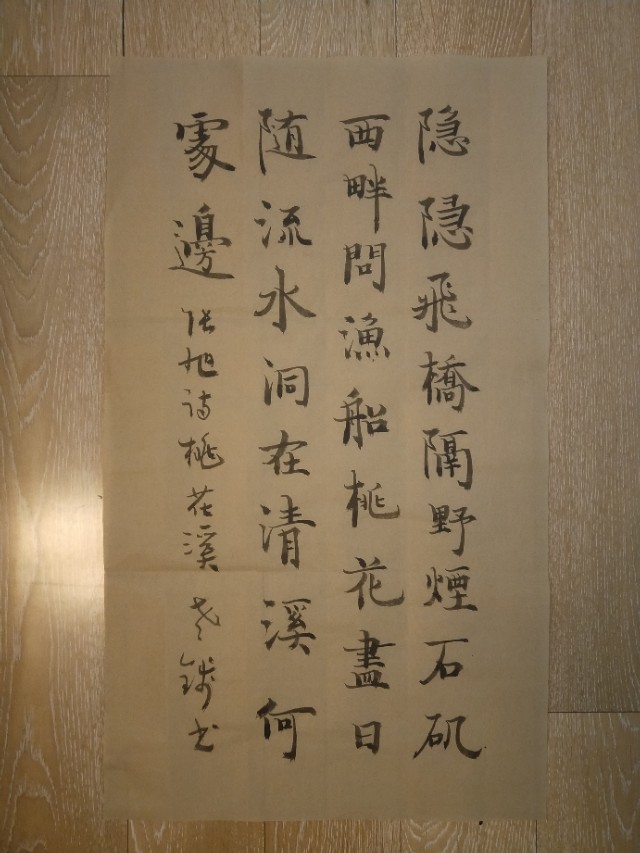 隐隐飛橋隔野煙石矶
西畔問漁船桃花盡日
随流水洞在清溪何
處邊 张旭诗桃花溪 老鐵书